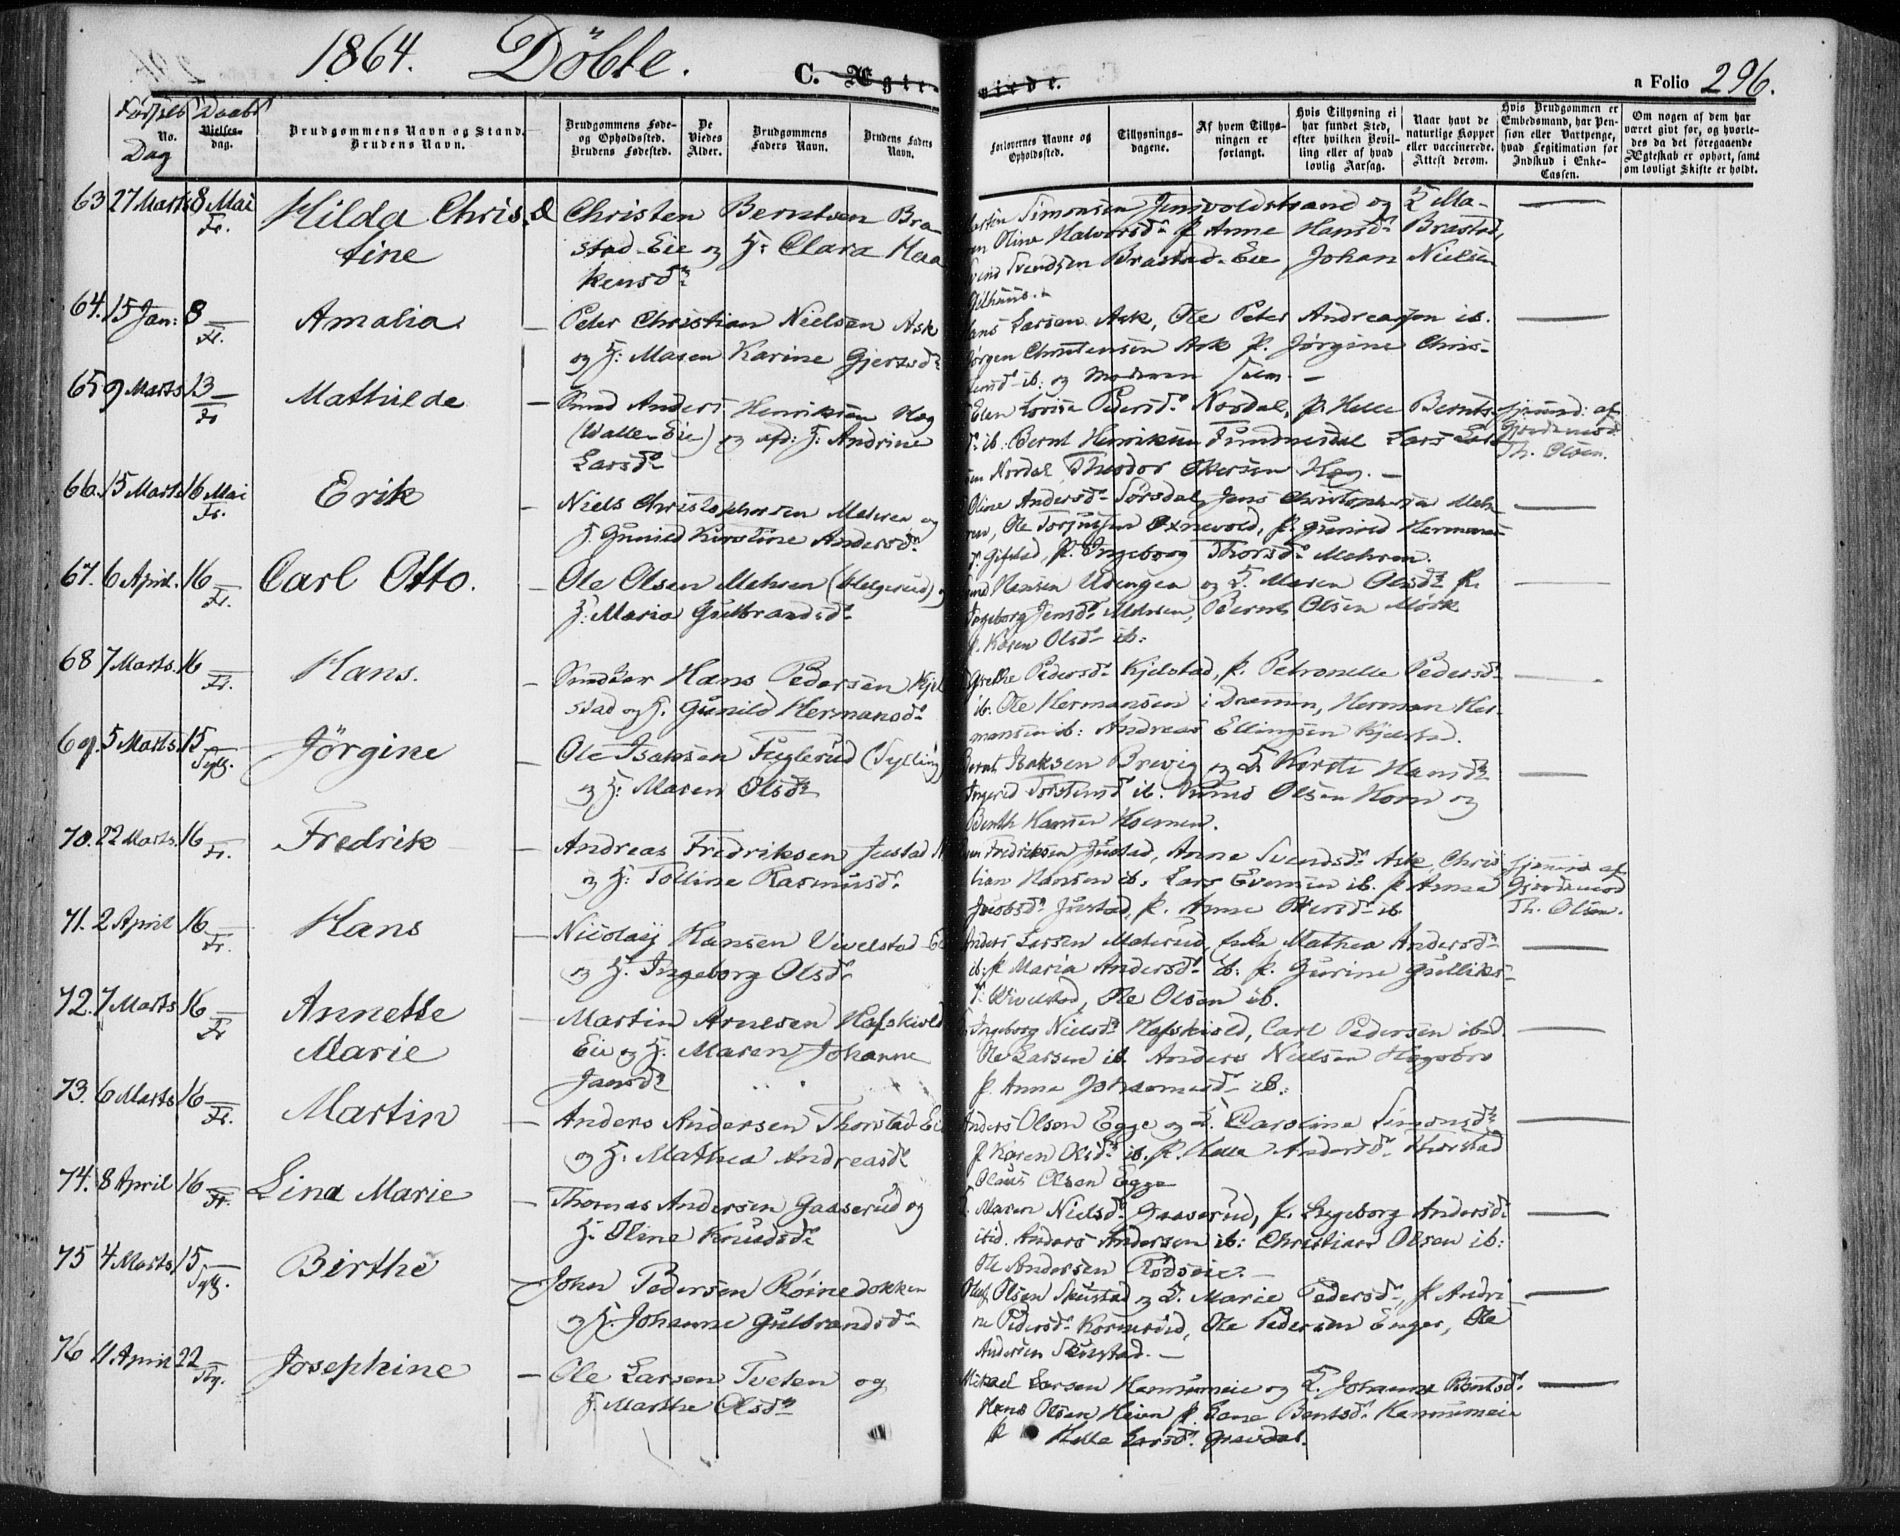 1864. Döbte. C. Ægte- vixde. a Folio 296.
Födsels Daabs
No. Vielses-
Dag dag.
Brudgommens Navn og Stand.
Brudens Navn.
Brudgommens Føde-
og Opholdssted.
Brudens Fødested.
De
Viedes
Alder.
Brudgommens
Faders Navn.
Brudens Faders
Navn.
Forlovernes Navne og
Opholdssted.
Tillysnings-
dagene.
Af hvem Tillys-
ningen er
forlangt.
Hvis Tillysning ei
har fundet Sted,
efter hvilken Bevil-
ling eller af hvad
lovlig Aarsag.
Naar havt de
naturlige Kopper
eller vaccinerede.
Attest derom.
Hvis Brudgommen er
Embedsmand, har Pen-
sion eller Vartpenge,
hvad Legitimation for
Indskud i Enke-
Cassen.
Om nogen af dem har
været givt før, og hvorle-
des da det foregaaende
Ægteskab er ophørt, samt
om lovligt Skifte er holdt.
63 27 Marts 8 Mai Fr. Hilda Chris-
tine
Christen Berntsen Bra-
stad-Eie og H: Clara Haa
kensdr
Simonsen Jensvoldstrand og H Ma-
Oline Halvorsdr P. Anne Hansdr Brastad,
Svendsen Brastad-Eie, Johan Nielsen
Gilhuus.
64. 15 Jan: 8 Fr. Amalia
Peter Christian Nielsen Ask
og H: Maren Karine Gjertsdr
Larsen Ask, Ole Peter Andreassen ib.
Jørgen Christensen Ask P. Jørgine Chris-
tensdr ib: og Moderen selv.
65 9 Marts 13 Fr Mathilde
Anders Henriksen Heg
(Walle-Eie) og afd: H: Andrine
Larsdr
Elen Lovise Pedersdr Nordal, P. Helle Bernts-
dr ib. Bernt Henriksen Lars
Nordal, Theodor Heg.
Hjemmed: af
Gjordemod.
Th. Olsen.
66. 15 Marts 16 Mai Fr. Erik
Niels Christophersen Mehren og
H Gunild Kirstine Andersdr
Oline Andersdr Sørsdal, Jens Christophersen Meh-
ren, Ole Torjussen Oxnevold, P. Gunild Hermans-
dr Gifstad, P. Ingeborg Thorsdr Mehren.
67. 6 April. 16 Fr. Carl Otto.
Ole Olsen Mehren (Helgerud) og
H: Maria Gulbrandsdr
Hansen og H. Maren Olsdr P.
Ingeborg Jensdr Mehren, Bernt Olsen Mörk
P. Karen Olsdr ib:
68 7 Marts. 16 Fr. Hans.
Hans Pedersen Kjel
stad og H. Gunild Hermansdr
Grethe Pedersdr Kjelstad, P. Petronelle Pedersdr
ib. Ole Hermansen i Drammen, Herman Her-
mansen ib: Andreas Ellingsen Kjelstad.
69. 5 Marts. 15 Sylg. Jørgine
Ole Isaksen Fuglerud (Sylling)
og H: Maren Olsdr
Bernt Isaksen Brevig og H Kirsti Hansdr
Ingerid Torstensdr ib. Knud Olsen Horn og
Hansen
70. 22 Marts. 16 Fr. Fredrik
Andreas Fredriksen Justad
og H: Tolline Rasmusdr
Fredriksen Justad, Anne Svendsdr Ask, Chris
tian Hansen ib. Lars Evensen ib. P Anna
Jacobsdr Justad, P. Anne ib
Hjemmed af
Gjordemod
Th. Olsen.
71. 2 April 16 Fr. Hans
Nicolaij Hansen Vivelstad
og H. Ingeborg Olsdr
Anders Larsen Mathea Andersdr
ib: P Maria Andersdr ib: P. Gurine Gulliks-
dr Wivelstad, Ole Olsen ib.
72. 7 Marts 16 Fr Annette
Marie
Martin Arnesen Hafskiold
Eie og H. Maren Johanne
Jansdr
Ingeborg Nielsdr Hafskiold, Carl Pedersen ibid.
Ole Larsen ib. Anders Nielsen Hagebro
P. Anne Johannesdr ib:
73. 6 Marts 16 Fr. Martin
Anders Andersen Thorstad-Eie
og H. Mathea Andreasdr
Anders Olsen Egge og H. Caroline Simonsdr
P Karen Olsdr ib. P. Helle Andersdr Thorstad
Olaus Olsen Egge
74. 8 April 16 Fr. Lina Marie
Thomas Andersen Gaaserud og
H. Oline Knudsdr
Maren Nielsdr Gaaserud, P. Ingeborg Andersdr
ibid. Anders Andersen ib: Christian Olsen ib:
Ole Andersen Rødseie.
75 4 Marts 15 Sylg. Birthe
John Pedersen Röinedokken
og H. Johanne Gulbrandsdr
Oluf Olsen Skustad og H. Marie Pedersdr, P Andri
ne Pedersdr Kornerud, Ole Pedersen Enger, Ole
Andersen Skustad.
76 11 April 22 Josephine
Ole Larsen Tveten og
H. Marthe Olsdr
Mikael Larsen og H. Johanne Berntsdr
Hans Olsen Heien P. Berntsdr
P Helle Larsdr